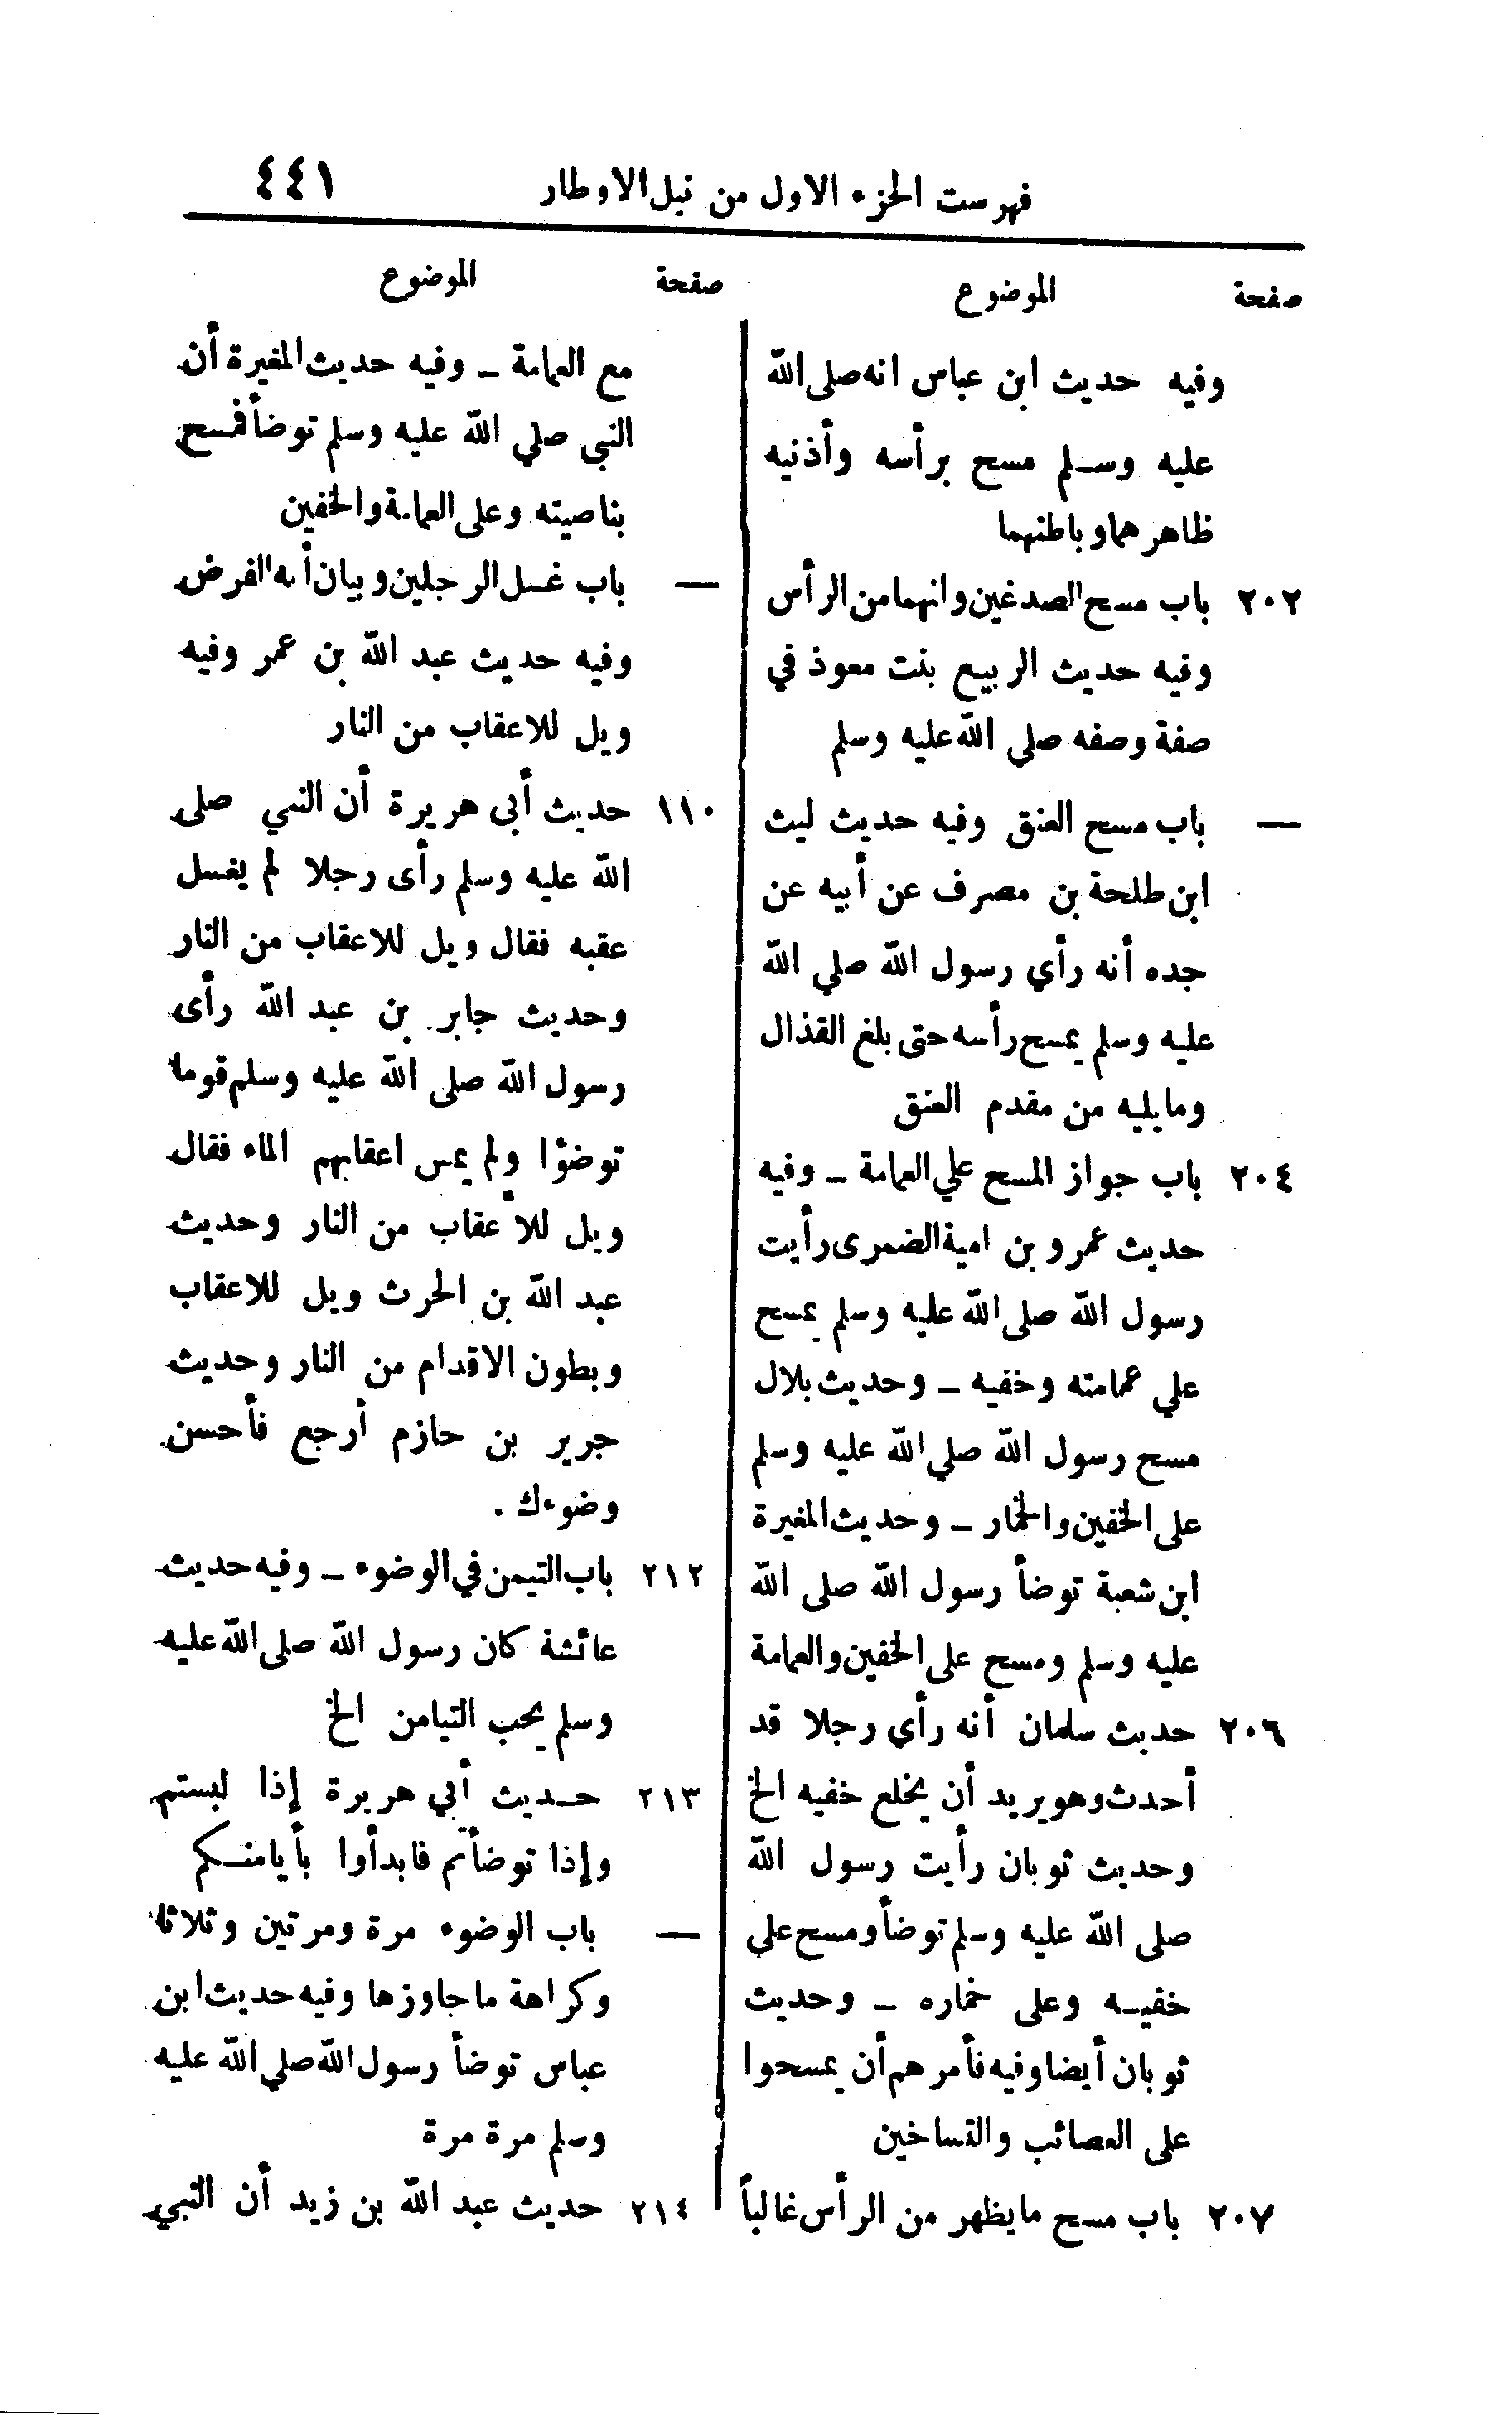 فهرست الجزء الاول من نيل الاوطار ٤٤١
صفحة الموضوع
وفيه حديث ابن عباس انه صلى الله
عليه وسلم مسح برأسه وأذنيه
ظاهرهما وباطنهما
٢٠٢ باب مسح الصدغين وانهما من الرأس
وفيه حديث الربيع بنت معوذ في
صفة وصفه صلي الله عليه وسلم
— باب مسح العنق وفيه حديث ليث
ابن طلحة بن مصرف عن أبيه عن
جده أنه رأي رسول الله صلي الله
عليه وسلم يمسح رأسه حتى بلغ القذال
وما يليه من مقدم العنق
٢٠٤ باب جواز المسح علي العمامة - وفيه
حديث عمرو بن امية الضمرى رأيت
رسول الله صلى الله عليه وسلم يمسح
علي عمامته وخفيه - وحديث بلال
مسح رسول الله صلي الله عليه وسلم
على الخفين والخمار - وحديث المغيرة
ابن شعبة توضأ رسول الله صلى الله
عليه وسلم ومسح على الخفين والعمامة
٢٠٦ حديث سلمان أنه رأي رجلا قد
أحدث وهو يريد أن يخلع خفيه الخ
وحديث ثوبان رأيت رسول الله
صلى الله عليه وسلم توضأ ومسح علي
خفيه وعلى خماره - وحديث
ثوبان أيضا وفيه فأمرهم أن يمسحوا
على العصائب والتساخين
٢٠٧ باب مسح ما يظهر من الرأس غالباً
صفحة الموضوع
مع العمامة - وفيه حديث المغيرة أن
النبى صلي الله عليه وسلم توضأ فمسح
بناصيته وعلى العمامة والخفين
— باب غسل الرجلين وبيان أنه الفرض
وفيه حديث عبد الله بن عمر وفيه
ويل للاعقاب من النار
١١٠ حديث أبى هريرة أن النبي صلى
الله عليه وسلم رأى رجلا لم يغسل
عقبه فقال ويل للاعقاب من النار
وحديث جابر بن عبد الله رأى
رسول الله صلى الله عليه وسلم قوما
توضؤا ولم يمس اعقابهم الماء فقال
ويل للأعقاب من النار وحديث
عبد الله بن الحرث ويل للاعقاب
وبطون الاقدام من النار وحديث
جرير بن حازم أرجع فأحسن
وضوءك .
٢١٢ باب التيمن في الوضوء - وفيه حديث
عائشة كان رسول الله صلى الله عليه
وسلم يحب التيامن الخ
٢١٣ حديث أبي هريرة إذا لبستم
وإذا توضأتم فابدأوا بأيامنكم
— باب الوضوء مرة ومرتين وثلاثا
وكراهة ما جاوزها وفيه حديث ابن
عباس توضأ رسول الله صلي الله عليه
وسلم مرة مرة
٢١٤ حديث عبد الله بن زيد أن النبي